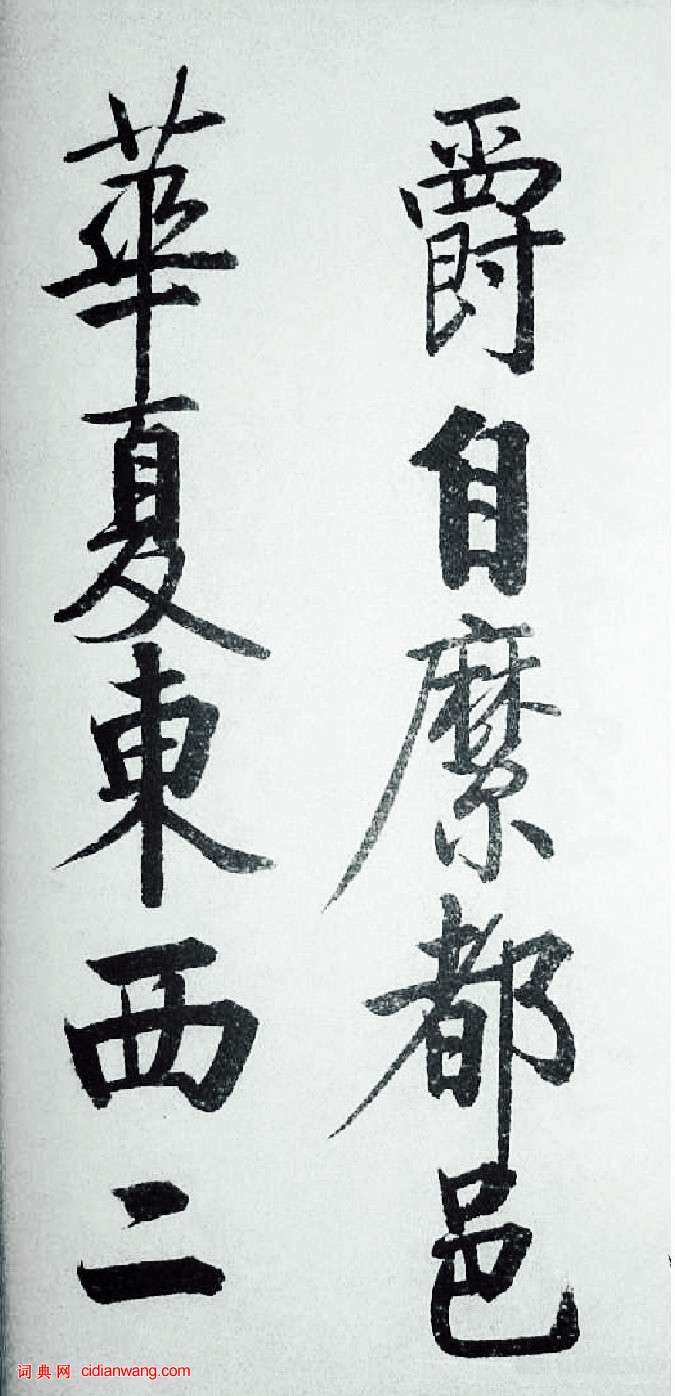 爵自縻都邑
華夏東西二
词典网 cidianwang.com